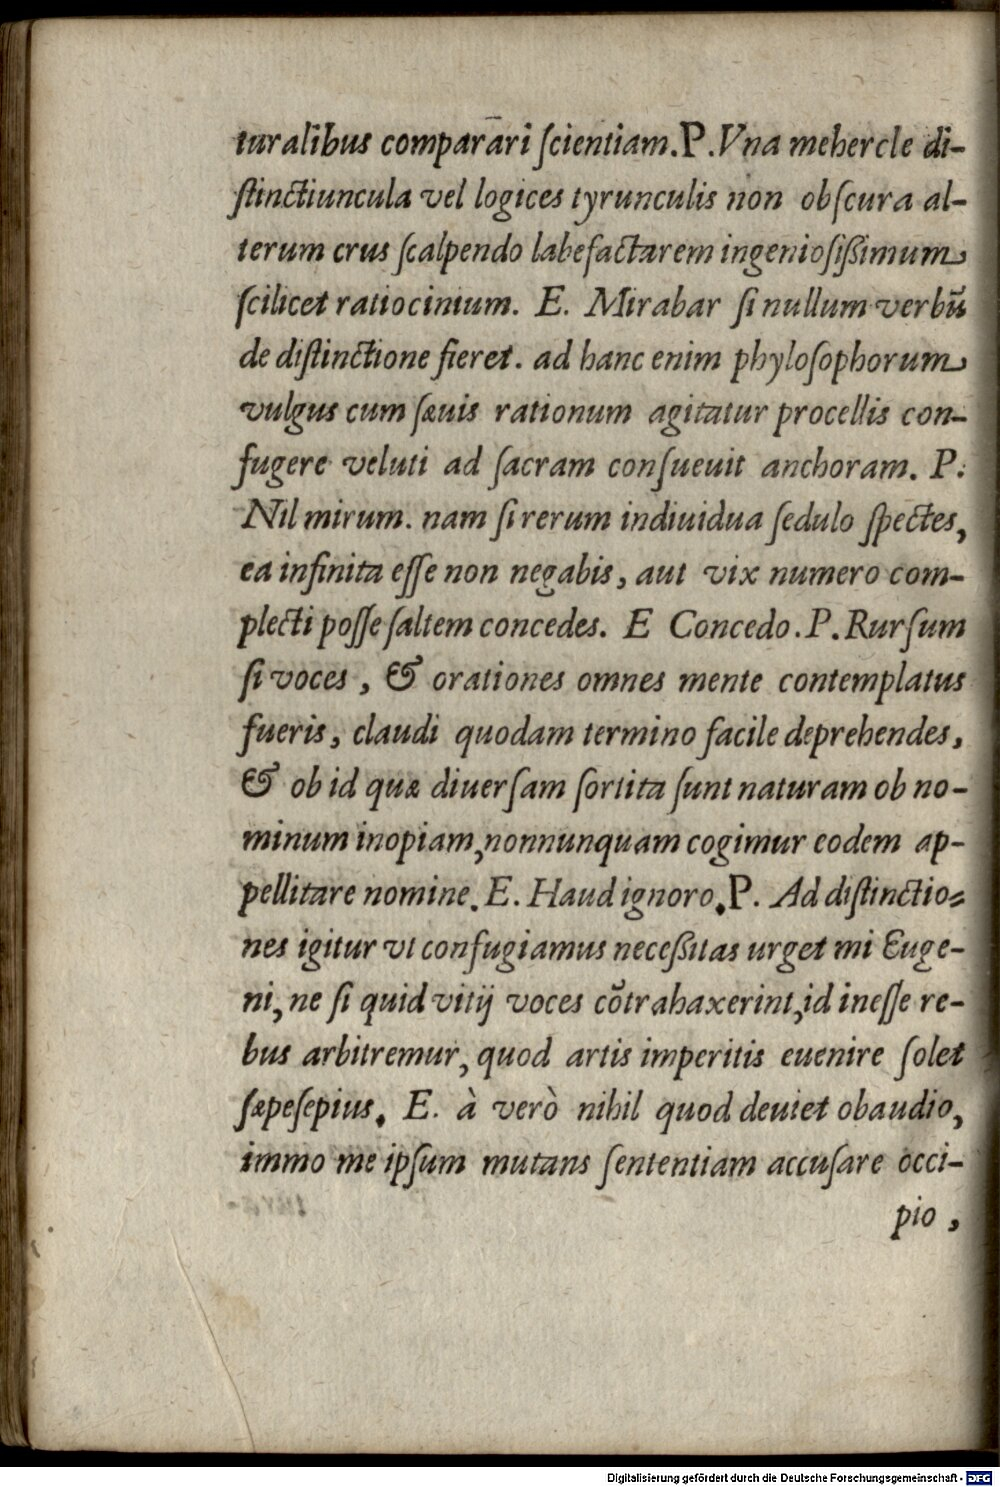 turalibus comparari ſcientiam. P. Vna mehercle di-
ſtinctiuncula vel logices tyrunculis non obſcura al-
terum crus ſcalpendo labefactarem ingenioſiſsimum
ſcilicet ratiocinium. E. Mirabar ſi nullum verbū
de diſtinctione fieret. ad hanc enim phyloſophorum
vulgus cum ſæuis rationum agitatur procellis con-
fugere veluti ad ſacram conſueuit anchoram. P.
Nil mirum. nam ſi rerum indiuidua ſedulo ſpectes,
ea infinita eſſe non negabis, aut vix numero com-
plecti poſſe ſaltem concedes. E Concedo. P. Rurſum
ſi voces, & orationes omnes mente contemplatus
fueris, claudi quodam termino facile deprehendes,
& ob id quæ diuerſam ſortita ſunt naturam ob no-
minum inopiam, nonnunquam cogimur eodem ap-
pellitare nomine. E. Haud ignoro. P. Ad diſtinctio-
nes igitur vt confugiamus neceſsitas urget mi Euge-
ni, ne ſi quid vitij voces cōtrahaxerint, id ineſſe re-
bus arbitremur, quod artis imperitis euenire ſolet
ſæpeſepius. E. à verò nihil quod deuiet obaudio,
immo me ipſum mutans ſententiam accuſare occi-
pio,
Digitalisierung gefördert durch die Deutsche Forschungsgemeinschaft - DFG